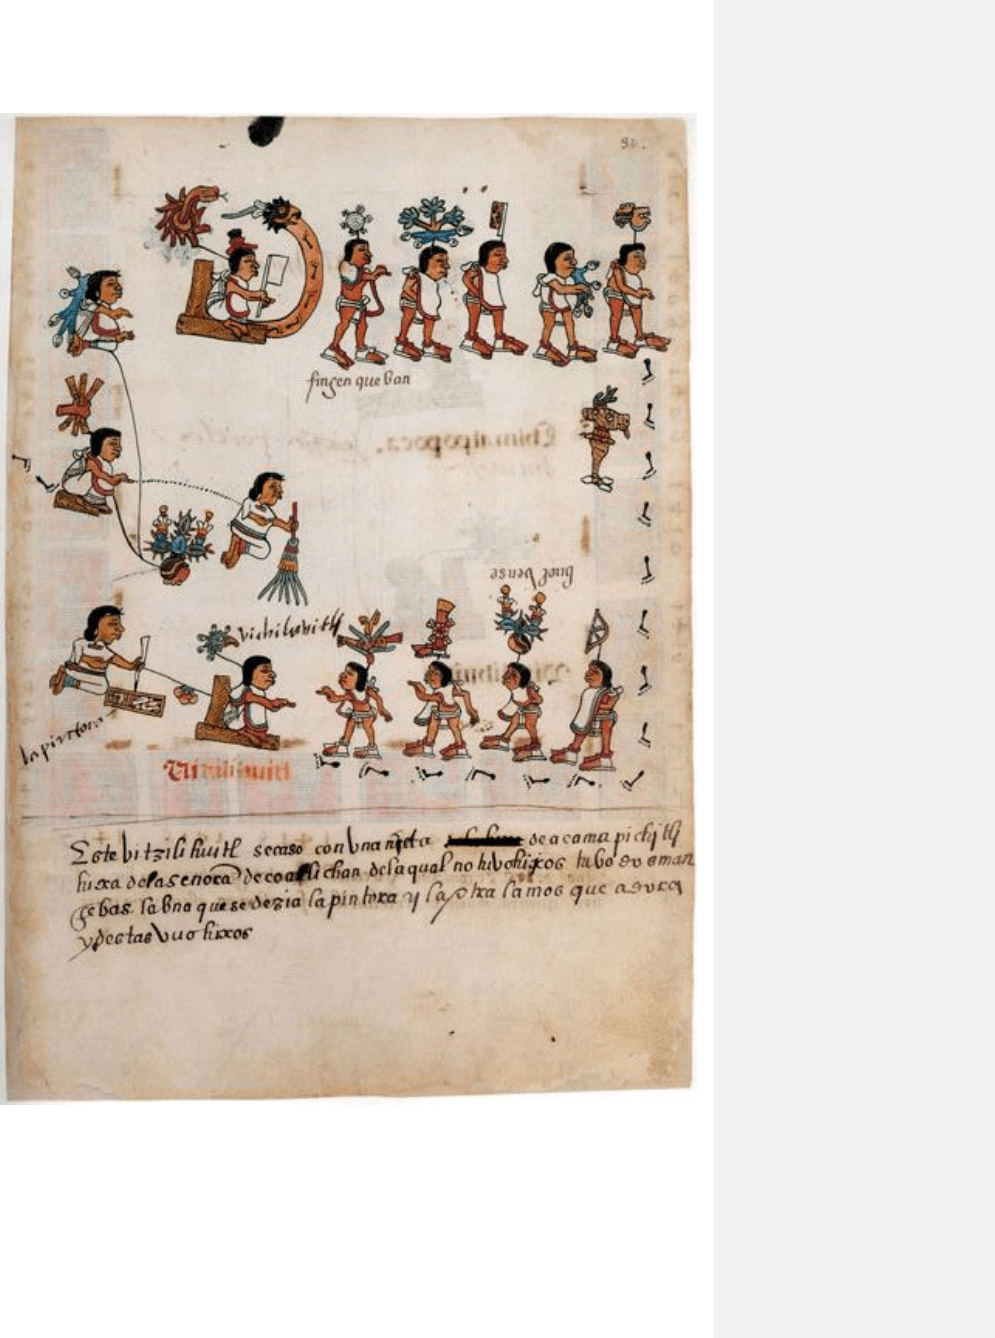 30.
fingen que ban
buelbense
vichilovitli
la pintora
Vitzilihuitl
Este bitzilihuitl secaso con Vna nyeta de acama pichtli
hixa dela señora de coatlichan dela qual no hubo hixos tubo dos man
cebas. la bna que se dezia la pintora y la otra la mos que a gora
y destas Vuo hixos